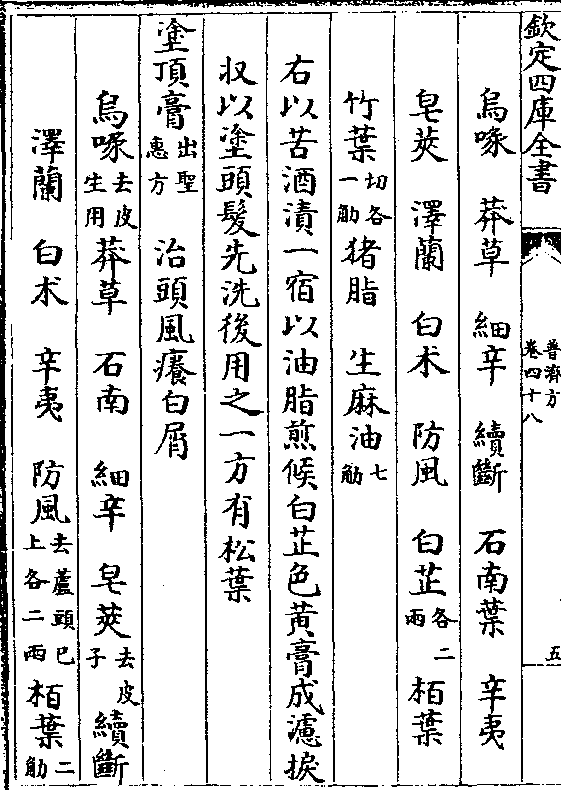 欽定四庫全書
普濟方
卷四十八
五
烏喙 莽草 細辛 續斷 石南葉 辛夷
皂莢 澤蘭 白朮 防風 白芷各二兩 栢葉
竹葉切各一觔 猪脂 生麻油七觔
右以苦酒漬一宿以油脂煎候白芷色黄膏成濾捩
収以塗頭髮先洗後用之一方有松葉
塗頂膏出聖惠方 治頭風癢白屑
烏喙去皮生用 莽草 石南 細辛 皂莢去皮子 續斷
澤蘭 白朮 辛夷 防風去蘆頭已上各二兩 栢葉二觔